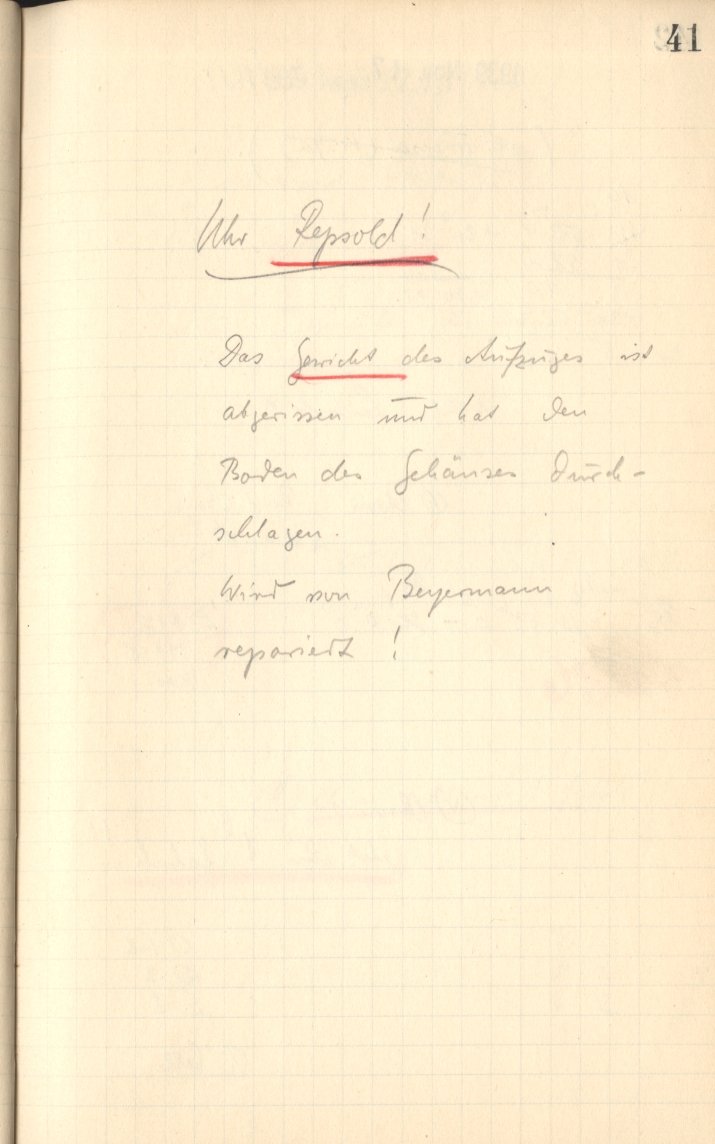 41
Uhr Repsold!
Das Gewicht des Aufzuges ist
abgerissen und hat den
Boden des Gehäuses durch-
schlagen.
Wird von Beyermann
repariert!